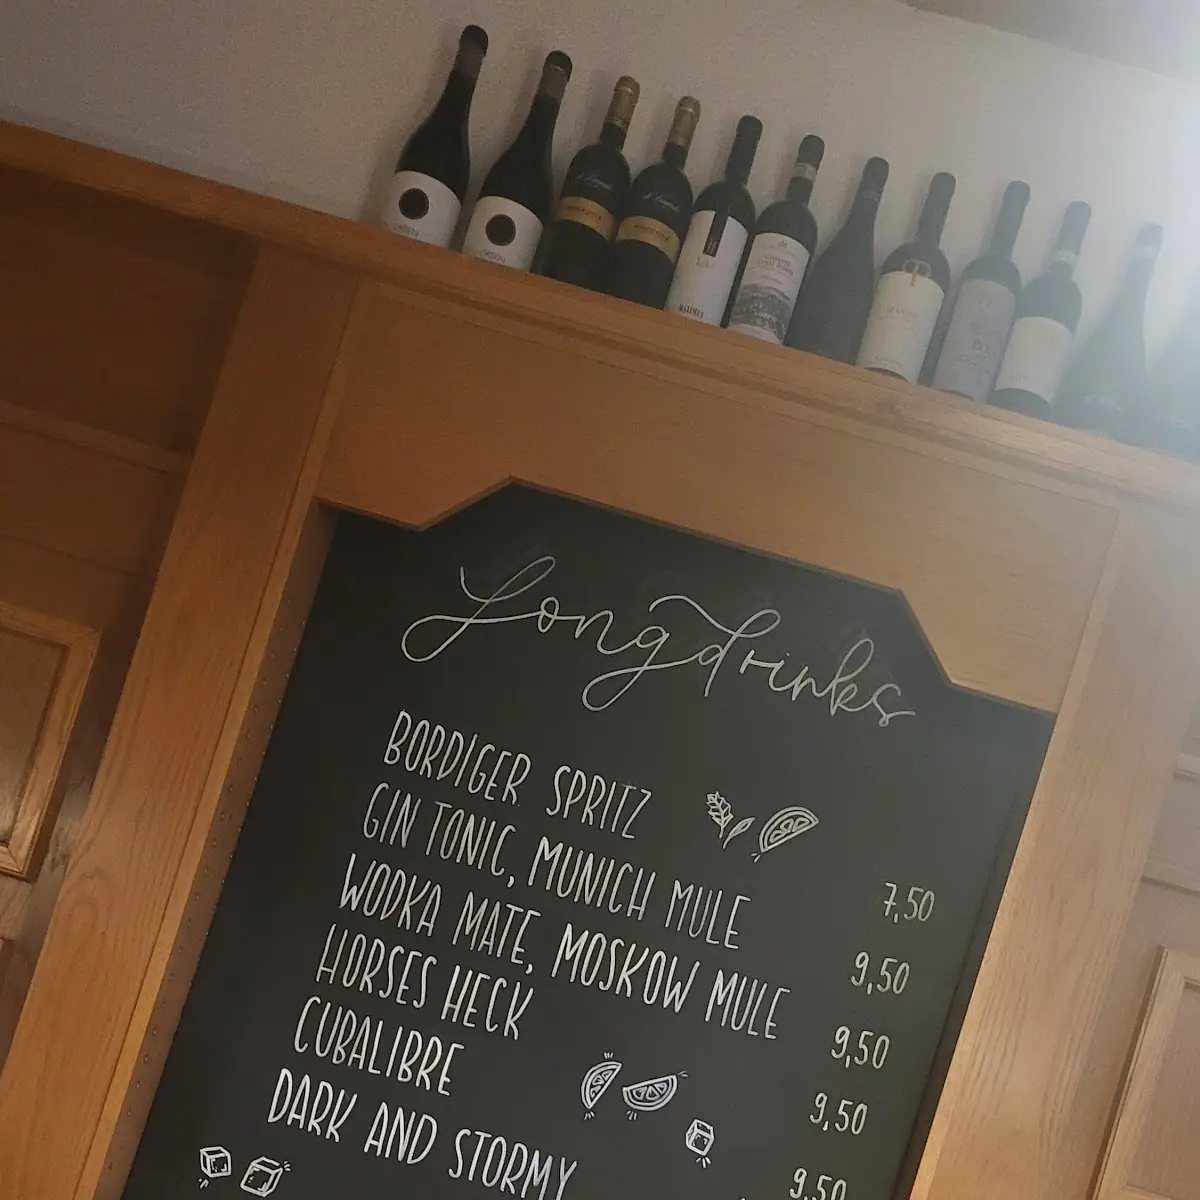 Longdrinks
BORDIGER SPRITZ 7,50
GIN TONIC, MUNICH MULE 9,50
WODKA MATE, MOSKOW MULE 9,50
HORSES HECK 9,50
CUBALIBRE 9,50
DARK AND STORMY